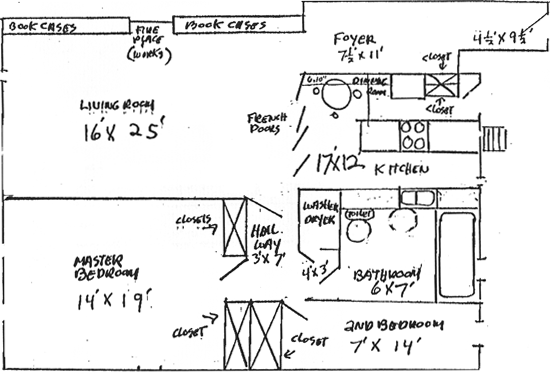 BOOK CASES
FIRE
PLACE
(WORKS)
BOOK CASES
FOYER
7½' X 11'
4½' X 9½'
CLOSET
6'10"
DINING
ROOM
CLOSET
LIVING ROOM
16' X 25'
FRENCH
DOORS
17' X 12'
KITCHEN
CLOSETS
HALL
WAY
3' X 7'
WASHER
DRYER
TOILET
MASTER
BEDROOM
14' X 19'
4' X 3'
BATHROOM
6' X 7'
CLOSET
CLOSET
2ND BEDROOM
7' X 14'